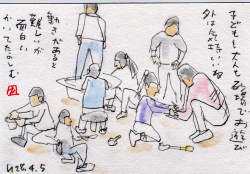 子どもも大人も砂場でお遊び
外は気持いいね
動きがあると
難しいが
面白い
かいてたのしむ
H28.4.5